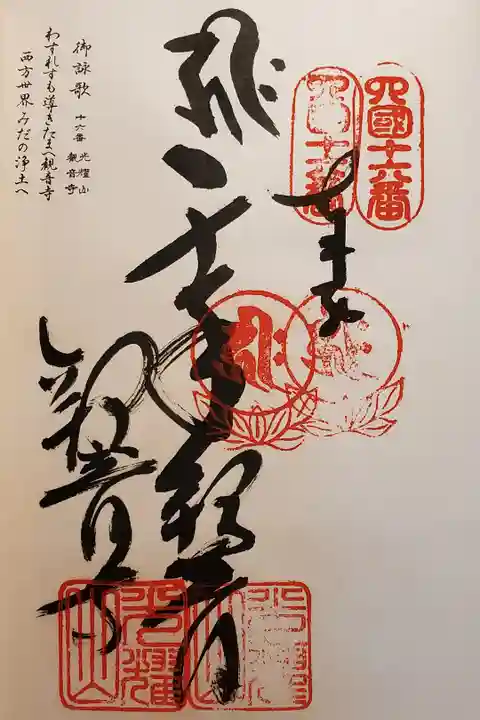 四國十六番
四國十六番
奉納
千手観音
観音寺
光耀山
光耀山
御詠歌
十六番 光耀山
観音寺
わすれずも導きたまへ観音寺
西方世界みだの浄土へ